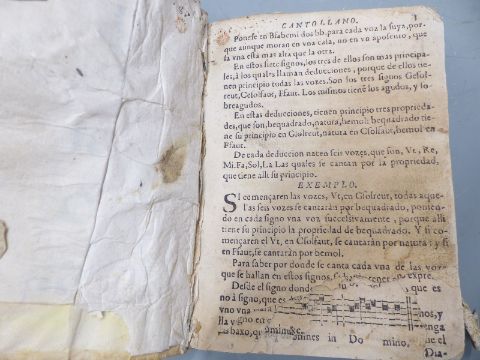 CANTO LLANO.
Ponese en Bfabemi dos bb. para cada voz la suya, por-
que aunque moran en vna casa, no en vn aposento, que
la vna està mas alta que la otra.
En estos siete signos, los tres de ellos son mas principa-
les, à los quales llaman deducciones, porque de ellos tie-
nen principio todas las vozes. Son los tres signos Gesol-
reut, Cesolfaut, Ffaut. Los mismos tiene los agudos, y so-
breagudos.
En estas deducciones, tienen principio tres propieda-
des, que son, bequadrado, natura, bemol: bequadrado tie-
ne su principio en Gsolreut, natura en Csolfaut, bemol en
Ffaut.
De cada deduccion nacen seis vozes, que son, Vt, Re,
Mi, Fa, Sol, La. Las quales se cantan por la propriedad,
que tiene alli su principio.
EXEMPLO.
SI començaren las vozes, Vt, en Gsolreut, todas aque-
llas seis vozes se cantarán por bequadrado, ponien-
do en cada signo vna voz successivamente, porque alli
tiene su principio la propriedad de bequadrado. Y si co-
mençaren el Vt, en Csolfaut, se cantarán por natura: y si
en Ffaut, se cantarán por bemol.
Para saber por donde se canta cada vna de las vozes
que se hallan en estos signos,
Desde el signo donde que es
no à signo, que es
vno vna nos, y
lla signo en
abaxo, que
Do mino, que el
Dia-